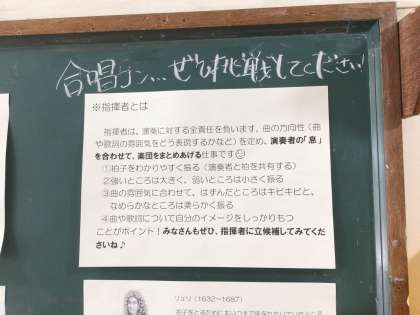 合唱コン…ぜひ挑戦してください!
※指揮者とは
指揮者は、演奏に対する全責任を負います。曲の方向性(曲
や歌詞の雰囲気をどう表現するかなど)を定め、演奏者の「息」
を合わせて、楽団をまとめあげる仕事です☺
①拍子をわかりやすく振る(演奏者と拍を共有する)
②強いところは大きく、弱いところは小さく振る
③曲の雰囲気に合わせて、はずんだところはキビキビと、
なめらかなところは柔らかく振る
④曲や歌詞について自分のイメージをしっかりもつ
ことがポイント!みなさんもぜひ、指揮者に立候補してみてくだ
さいね♪
リュリ(1632~1687)
拍子をとるために